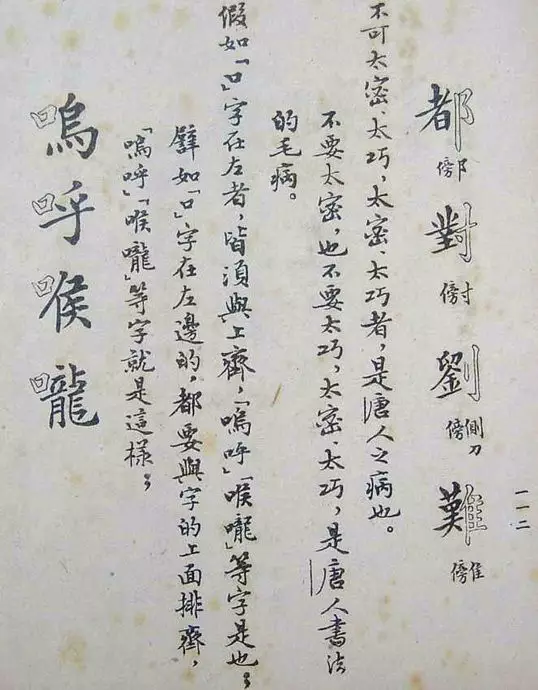 一一二
都 阝傍 對 寸傍 劉 側刀傍 難 隹傍
不可太密、太巧,太密、太巧者,是唐人之病也。
不要太密,也不要太巧,太密、太巧,是唐人書法
的毛病。
假如「口」字在左者,皆須與上齊,「嗚呼」「喉嚨」等字是也。
譬如「口」字在左邊的,都要與字的上面排齊,
「嗚呼」「喉嚨」等字就是這樣。
嗚呼喉嚨